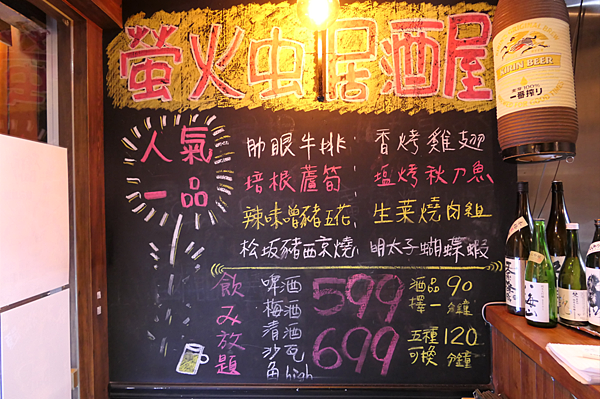 螢火虫居酒屋
人氣
一品
肋眼牛排 香烤雞翅
培根蘆筍 塩烤秋刀魚
辣味噌豬五花 生菜燒肉組
松坂豬西京燒 明太子蝴蝶蝦
飲み放題
啤酒
梅酒
清酒
沙瓦
角high
599 酒品擇一 90分鐘
699 五種可換 120分鐘
KIRIN BEER
一番搾り